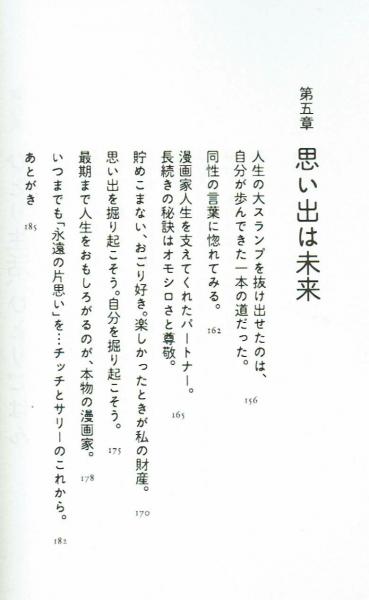 第五章
思い出は未来
人生の大スランプを抜け出せたのは、
自分が歩んできた一本の道だった。
156
同性の言葉に惚れてみる。
162
漫画家人生を支えてくれたパートナー。
長続きの秘訣はオモシロさと尊敬。
165
貯めこまない、おごり好き。楽しかったときが私の財産。
170
思い出を掘り起こそう。自分を掘り起こそう。
175
最期まで人生をおもしろがるのが、本物の漫画家。
178
いつまでも「永遠の片思い」を…チッチとサリーのこれから。
182
あとがき
185